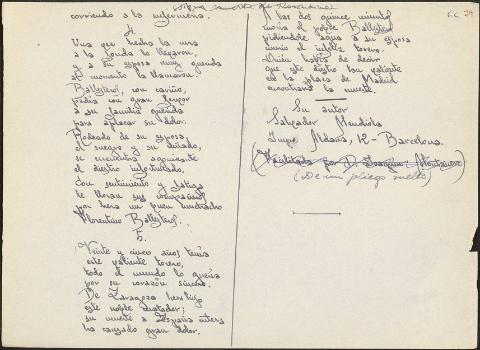 corriendo a la enfermera.
4.
Una vez hecha la cura
a la fonda lo llevaron,
y a su esposa muy querida
al momento la llamaron.
Ballesteros, con cariño,
pedía con gran fervor
a su familia querida
para aplacar su dolor.
Rodeado de su esposa,
el suegro y su cuñado,
se encuentra agonizante
el diestro infortunado.
Con sentimiento y
le lloran sus compañeros
por ser un buen muchacho
Florentino Ballesteros.
5.
Veinte y cinco años tenía
este valiente torero,
todo el mundo lo quería
por su corazón sincero.
De Zaragoza hera hijo
este noble matador;
su muerte a España entera
ha causado gran dolor.
A las dos quince minutos
moría el pobre Ballesteros
pidiéndole agua a su esposa
murió el infeliz torero.
Quien había de decir
que este diestro tan valiente
en la plaza de Madrid
encontrara la muerte.
Su autor
Salvador Mendiola
Imp. Aldana, 12 - Barcelona.
(Facilitado por D. Joaquín
(De un pliego suelto)